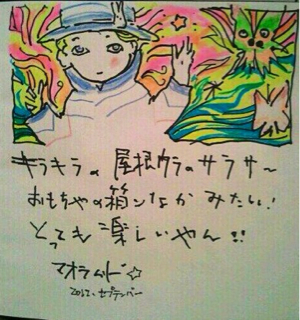 キラキラの屋根ウラのサラサ〜
おもちゃの箱ンなかみたい!
とっても楽しいやん!!
マオラムド☆
2012、セプテンバー